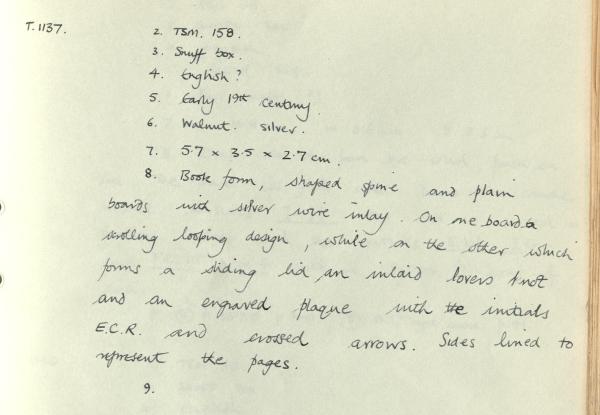 T.1137.
2. TSM. 158.
3. Snuff box.
4. English?
5. Early 19th century.
6. Walnut. silver.
7. 5.7 x 3.5 x 2.7 cm.
8. Book form, shaped spine and plain
boards with silver wire inlay. On one board a
scrolling looping design, while on the other which
forms a sliding lid, an inlaid lovers knot
and an engraved plaque with the initials
E.C.R. and crossed arrows. Sides lined to
represent the pages.
9.